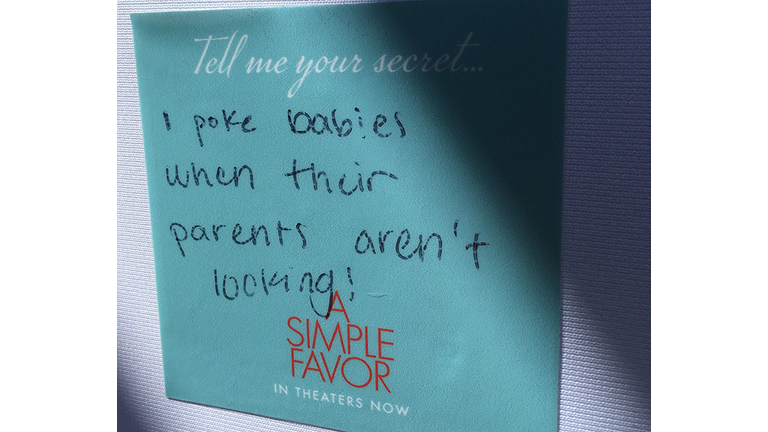 Tell me your secret...
I poke babies
when their
parents aren't
looking!
A
SIMPLE
FAVOR
IN THEATERS NOW